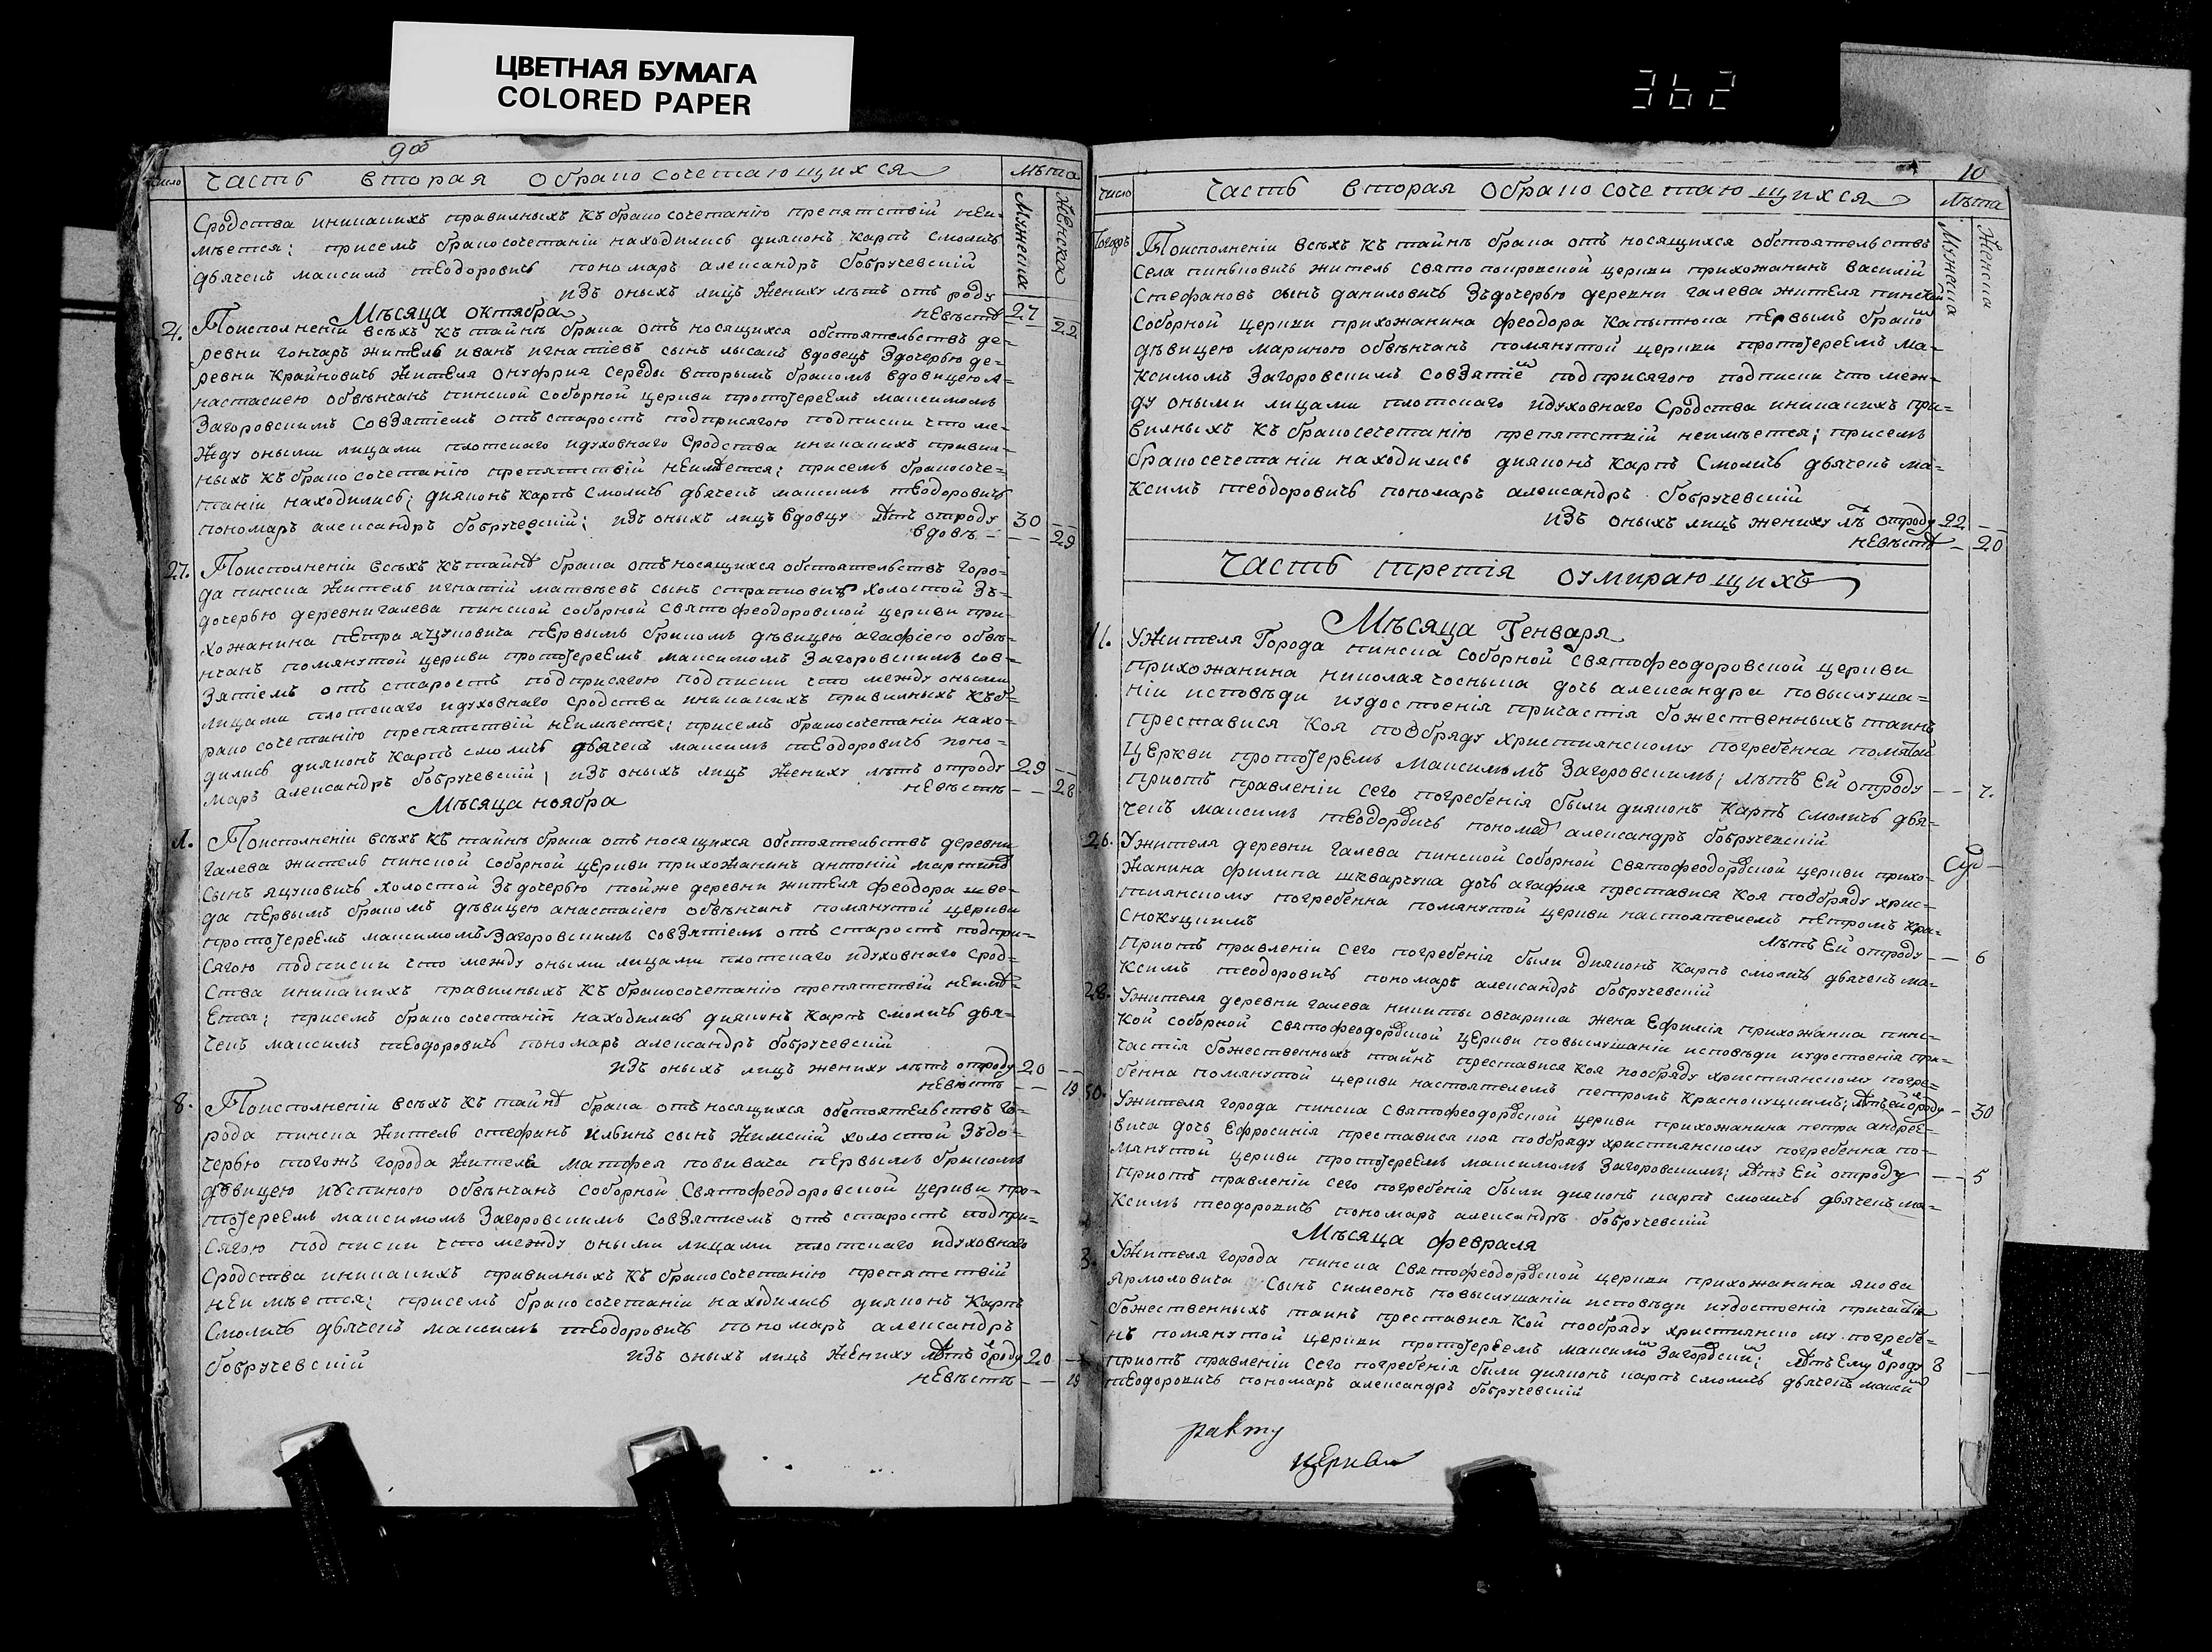 ЦВЕТНАЯ БУМАГА
COLORED PAPER
362
9об
число Часть вторая обракосочетающихся Лѣта
Мужеска Женска
Сродства иникакихъ правилныхъ къ бракосочетанію препятствій неи-
мѣется; присемъ бракосочетаніи находились диаконъ Карпъ Смоличъ
дьячекъ максимъ теодоровичъ пономаръ александръ бобручевскій
изъ оныхъ лицъ жениху лѣтъ отъ роду 27
невѣстѣ 22
Мѣсяца октября
4. Поисполненіи всѣхъ къ тайнѣ брака отъ носящихся обстоятельствъ де-
ревни гончаръ житель иванъ игнатіевъ сынъ лысакъ вдовецъ здочерью де-
ревни Крайновичъ жителя онуфрия середы вторымъ бракомъ вдовицею а-
настасиею обвѣнчанъ пинской соборной церкви протоіереемъ максимомъ
Загоровскимъ совзятіемъ отъ старостъ подприсягою подписки что ме-
жду оными лицами плотскаго идуховнаго сродства иникакихъ правил-
ныхъ къ бракосочетанію препятствій неимѣется; присемъ бракосоче-
таніи находились; диаконъ карпъ смоличъ дьячекъ максимъ теодоровичъ
пономаръ александръ бобручевскій; изъ оныхъ лицъ вдовцу лѣтъ отроду 30
вдовѣ - 29
27. Поисполненіи всѣхъ къ тайнѣ брака отъ носящихся обстоятельствъ горо-
да пинска житель игнатій матвѣевъ сынъ страпковичъ холостой зъ-
дочерью деревни галева пинской соборной святофеодоровской церкви при-
хожанина петра яцуковича первымъ бракомъ дѣвицею агафіею обвѣ-
нчанъ помянутой церкви протоіереемъ максимомъ Загоровскимъ сов-
зятіемъ отъ старостъ подприсягою подписки что между оными
лицами плотскаго идуховнаго сродства иникакихъ правилныхъ къ б-
ракосочетанию препятствій неимѣется; присемъ бракосочетаніи нахо-
дились диаконъ карпъ смоличъ дьячекъ максимъ теодоровичъ поно-
маръ александръ бобручевскій; изъ оныхъ лицъ жениху лѣтъ отроду 29
невѣстѣ - 28
Мѣсяца ноября
1. Поисполненіи всѣхъ къ тайнѣ брака отъ носящихся обстоятельствъ деревни
галева житель пинской соборной церкви прихожанинъ антоній мартинъ
сынъ яцуковичъ холостой зъ дочерью тойже деревни жителя феодора шве-
да первымъ бракомъ дѣвицею анастасіею обвѣнчанъ помянутой церкви
протоіереемъ максимомъ Загоровскимъ совзятіемъ отъ старостъ подпри-
сягою подписки что между оными лицами плотскаго идуховнаго срод-
ства иникакихъ правилныхъ къ бракосочетанію препятствій неимѣ-
ется; присемъ бракосочетаніи находились диаконъ карпъ смоличъ дья-
чекъ максимъ теодоровичъ пономаръ александръ бобручевскій
изъ оныхъ лицъ жениху лѣтъ отроду 20
невѣстѣ - 19
8. Поисполненіи всѣхъ къ тайнѣ брака отъ носящихся обстоятельствъ го-
рода пинска житель стефанъ ильинъ сынъ жимскій холостой зъ до-
черью тогожъ города жителя матфея повивача первымъ бракомъ
дѣвицею иустиною обвѣнчанъ соборной святофеодоровской церкви про-
тоіереемъ максимомъ Загоровскимъ совзятиемъ отъ старостъ подпри-
сягою подписки что между оными лицами плотскаго идуховнаго
сродства иникакихъ правилныхъ къ бракосочетанію препятствій
неимѣется; присемъ бракосочетаніи находились диаконъ карпъ
смоличъ дьячекъ максимъ теодоровичъ пономаръ александръ
бобручевскій изъ оныхъ лицъ жениху лѣтъ ѿроду 20
невѣстѣ - 19
10
число Часть вторая обракосочетающихся Лѣта
Мужеска Женска
Поисполненіи всѣхъ къ тайнѣ брака отъ носящихся обстоятельствъ
Села пинковичъ житель свято покровской церкви прихожанинъ василій
Стефановъ сынъ даниловичъ зъдочерью деревни галева жителя пинской
Соборной церкви прихожанина феодора капытюка первымъ бракомъ
дѣвицею мариною обвѣнчанъ помянутой церкви протоіереемъ ма-
ксимомъ Загоровскимъ совзятіем подприсягою подписки что меж-
ду оными лицами плотскаго идуховнаго сродства иникакихъ пра-
вилныхъ къ бракосечетанію препятствій неимѣется; присемъ
бракосечетаніи находились диаконъ карпъ Смоличъ дьячекъ ма-
ксимъ теодоровичъ пономаръ александръ бобручевскій
изъ оныхъ лицъ жениху лѣтъ отроду 22
невѣстѣ - 20
Часть третія оумирающихъ
Мѣсяца Генваря
11. Ужителя Города пинска соборной святофеодоровской церкви
прихожанина николая чосныка дочь александра повыслуша-
ніи исповѣди иудостоенія причастія божественныхъ таинъ
преставися коя пообряду християнскому погребенна помятой
церкви протоіереемъ максимомъ Загоровскимъ; лѣтъ ей отроду - 7.
приотъ правленіи сего погребенія были диаконъ карпъ смоличъ дья-
чекъ максимъ теодоровичъ пономар александръ бобручевскій
26. Ужителя деревни галева пинской соборной святофеодоровской церкви прихо-
жанина филипа шкварчука дочь агафия преставися коя пообряду хрис-
тиянскому погребенна помянутой церкви настоятелемъ петромъ кра-
снокуцкимъ лѣтъ ей отроду - 6
приотъ правленіи сего погребенія были диаконъ карпъ смоличъ дьячекъ ма-
ксимъ теодоровичъ пономаръ александръ бобручевскій
28. Ужителя деревни галева никиты овчарика жена ефимія прихожанка пинс-
кой соборной святофеодоровской церкви повыслушаніи исповѣди иудостоенія при-
частія божественныхъ таинъ преставися коя пообряду християнскому погре-
бенна помянутой церкви настоятелемъ петромъ краснокуцкимъ; лѣтъ ей ѿроду - 30
30. Ужителя города пинска святофеодоровской церкви прихожанина петра андрее-
вича дочь ефросинія преставися коя пообряду християнскому погребенна по-
мянутой церкви протоіереемъ максимомъ Загоровскимъ; лѣтъ ей отроду - 5
приотъ правленіи сего погребенія были диаконъ карпъ смоличъ дьячекъ ма-
ксимъ теодоровичъ пономаръ александръ бобручевскій
Мѣсяца февраля
3. Ужителя города пинска святофеодоровской церкви прихожанина якова
ярмоловича сынъ симеонъ повыслушаніи исповѣди иудостоенія причастія
божественныхъ таинъ преставися кой пообряду християнскому погребе-
нъ помянутой церкви протоіереемъ максимом Загоровским; лѣтъ ему ѿроду 8
приотъ правленіи сего погребенія были диаконъ карпъ смоличъ дьячекъ максим
теодоровичъ пономаръ александръ бобручевскій
ракту
церкви